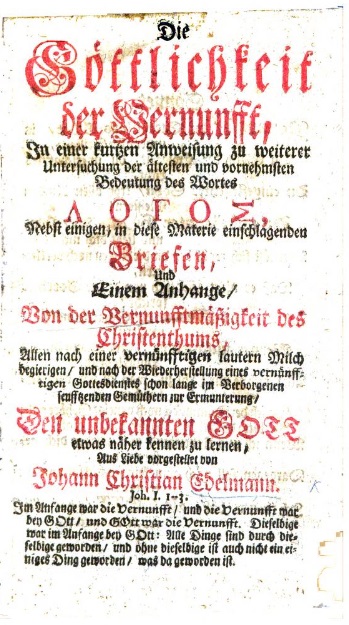 Die
Göttlichkeit
der Vernunfft,
In einer kurtzen Anweisung zu weiterer
Untersuchung der ältesten und vornehmsten
Bedeutung des Wortes
ΛΟΓΟΣ,
Nebst einigen, in diese Materie einschlagenden
Briefen,
Und
Einem Anhange/
Von der Vernunfftmäßigkeit des
Christenthums,
Allen nach einer vernünfftigen lautern Milch
begierigen/ und nach der Wiederherstellung eines vernünff-
tigen Gottesdienstes schon lange im Verborgenen
seufftzenden Gemüthern zur Ermunterung/
Den unbekannten GOTT
etwas näher kennen zu lernen,
Aus Liebe vorgestellet von
Johann Christian Edelmann.
Joh. I. 1-3.
Im Anfange war die Vernunfft/ und die Vernunfft war
bey GOtt/ und GOtt war die Vernunfft. Dieselbige
war im Anfange bey GOtt: Alle Dinge sind durch die-
selbige geworden/ und ohne dieselbige ist auch nicht ein ei-
niges Ding geworden/ was da geworden ist.